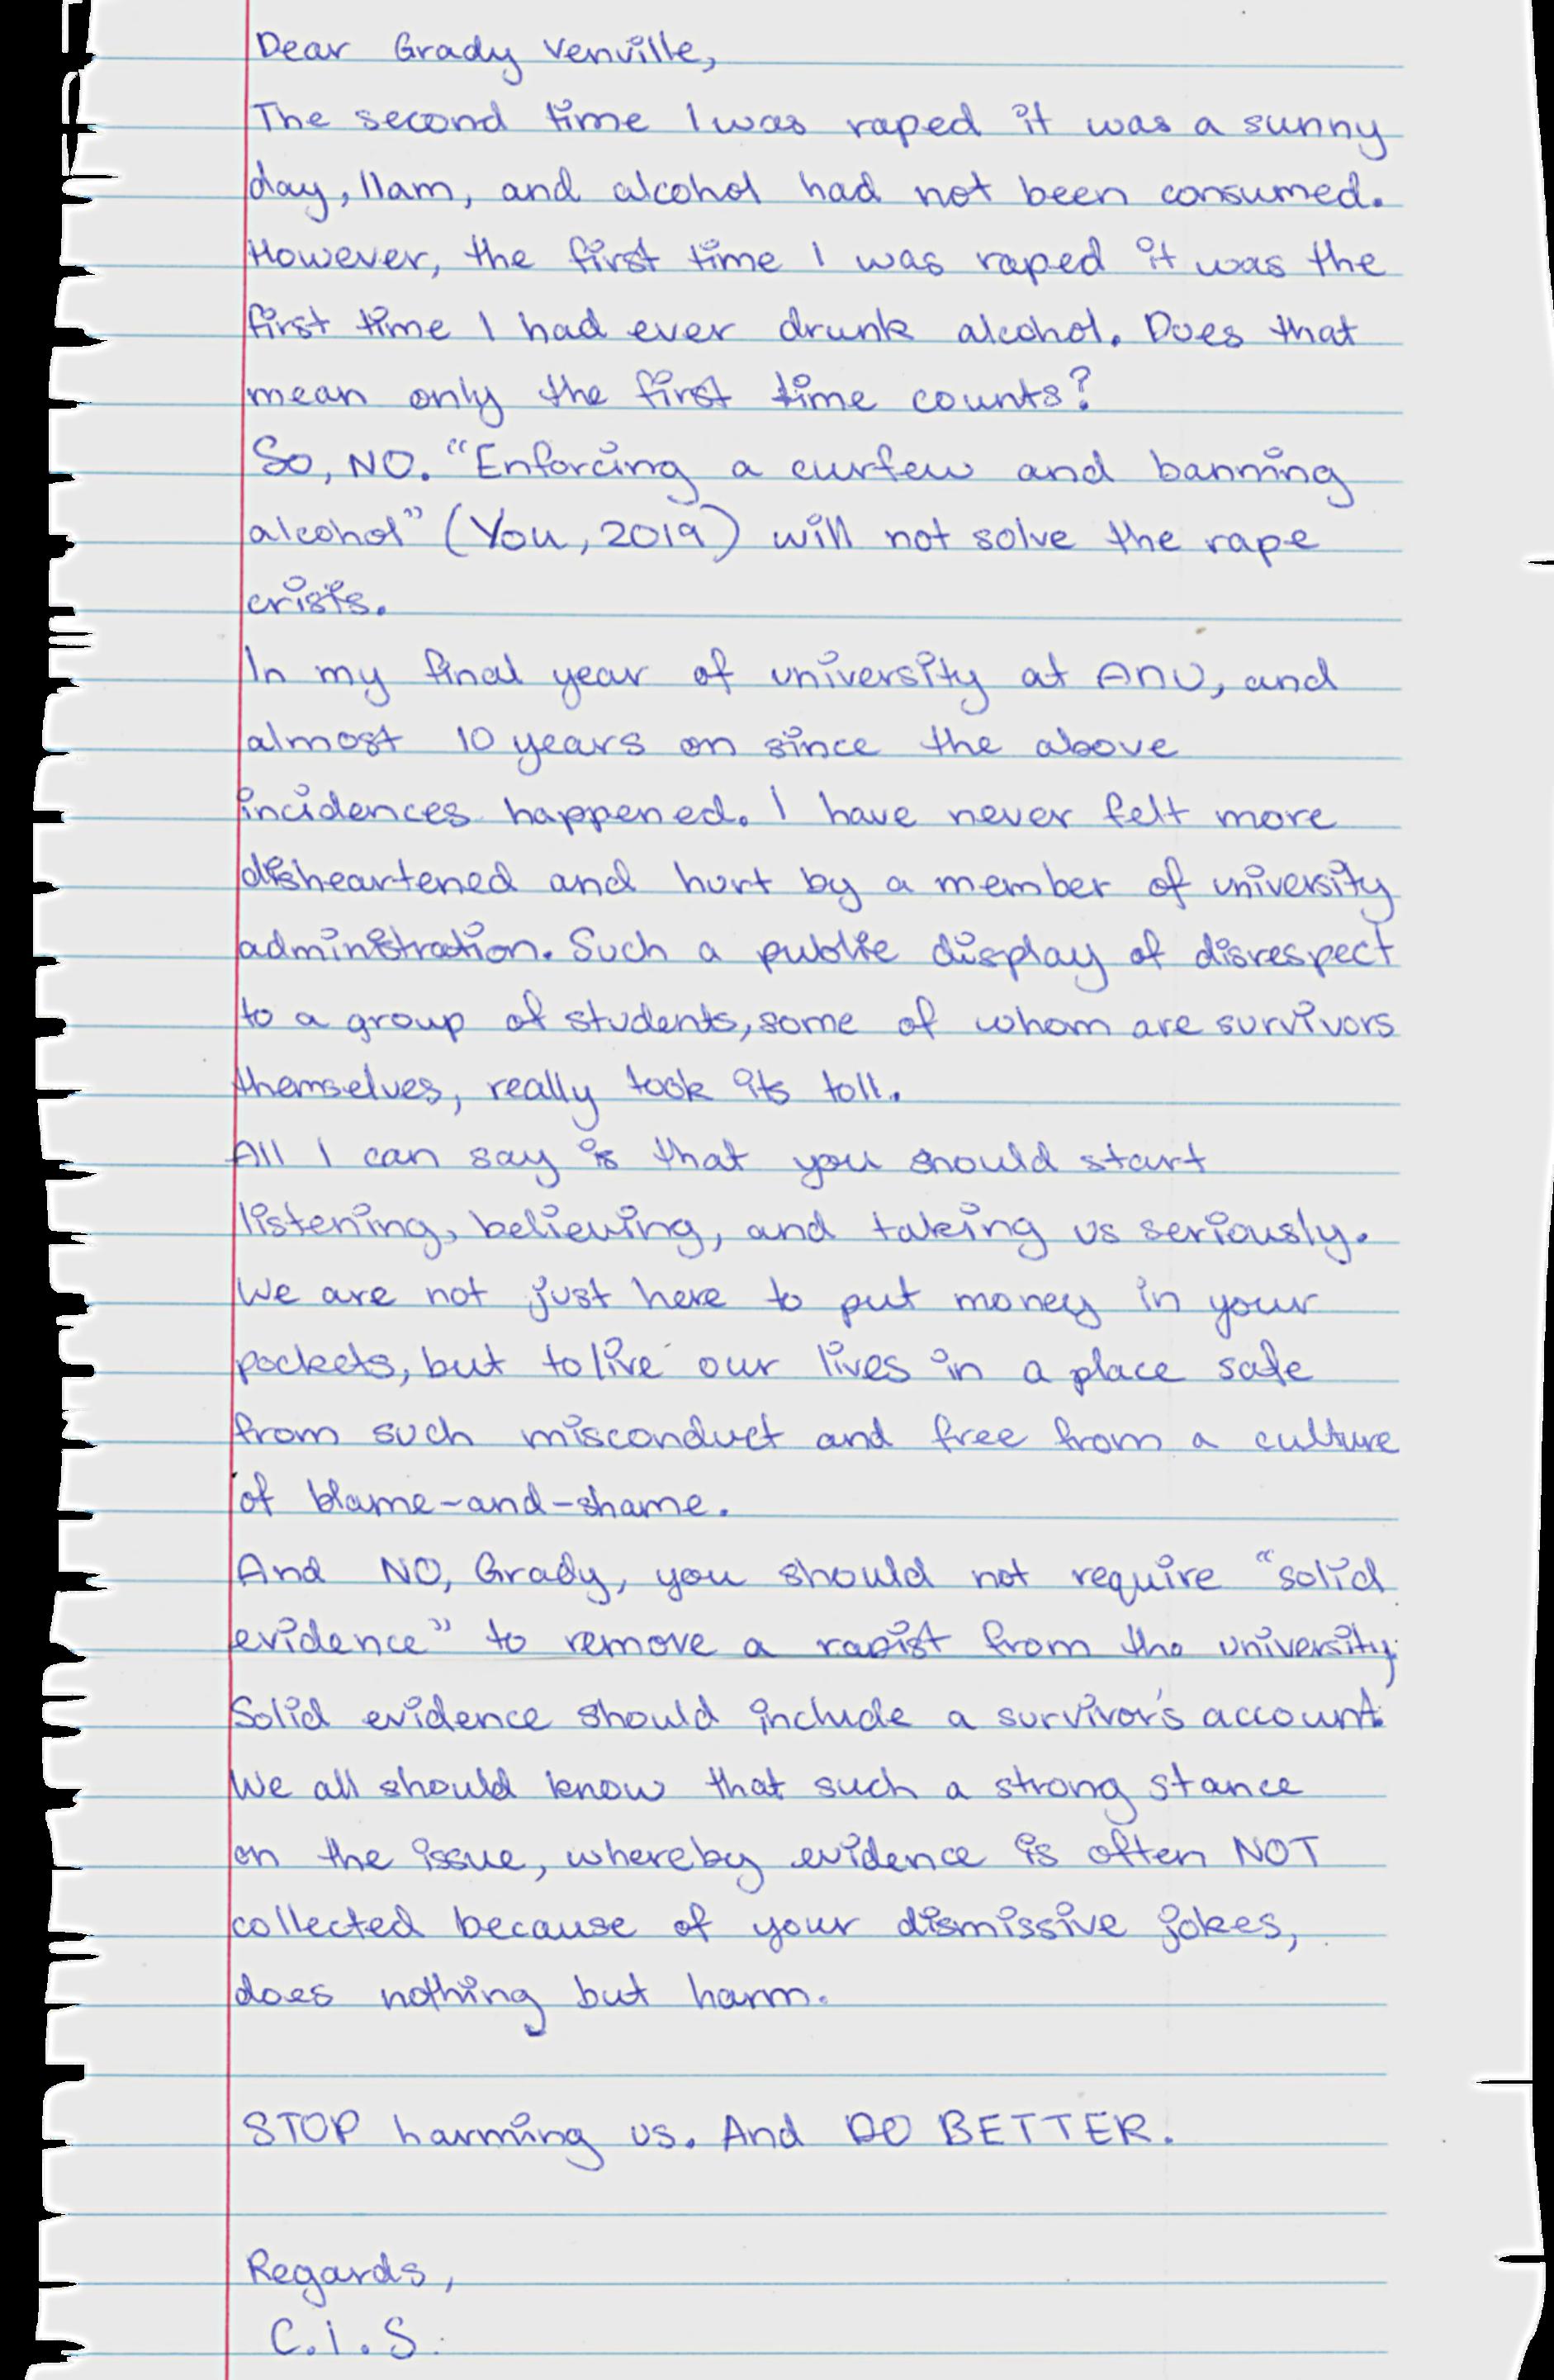 Dear Grady Venville,
The second time I was raped it was a sunny
day, 11am, and alcohol had not been consumed.
However, the first time I was raped it was the
first time I had ever drunk alcohol. Does that
mean only the first time counts?
So, NO. "Enforcing a curfew and banning
alcohol" (You, 2019) will not solve the rape
crisis.
In my final year of university at ANU, and
almost 10 years on since the above
incidences happened. I have never felt more
disheartened and hurt by a member of university
administration. Such a public display of disrespect
to a group of students, some of whom are survivors
themselves, really took its toll.
All I can say is that you should start
listening, believing, and taking us seriously.
We are not just here to put money in your
pockets, but to live our lives in a place safe
from such misconduct and free from a culture
of blame-and-shame.
And NO, Grady, you should not require "solid
evidence" to remove a rapist from the university.
Solid evidence should include a survivor's account.
We all should know that such a strong stance
on the issue, whereby evidence is often NOT
collected because of your dismissive jokes,
does nothing but harm.
STOP harming us. And DO BETTER.
Regards,
C.I.S.